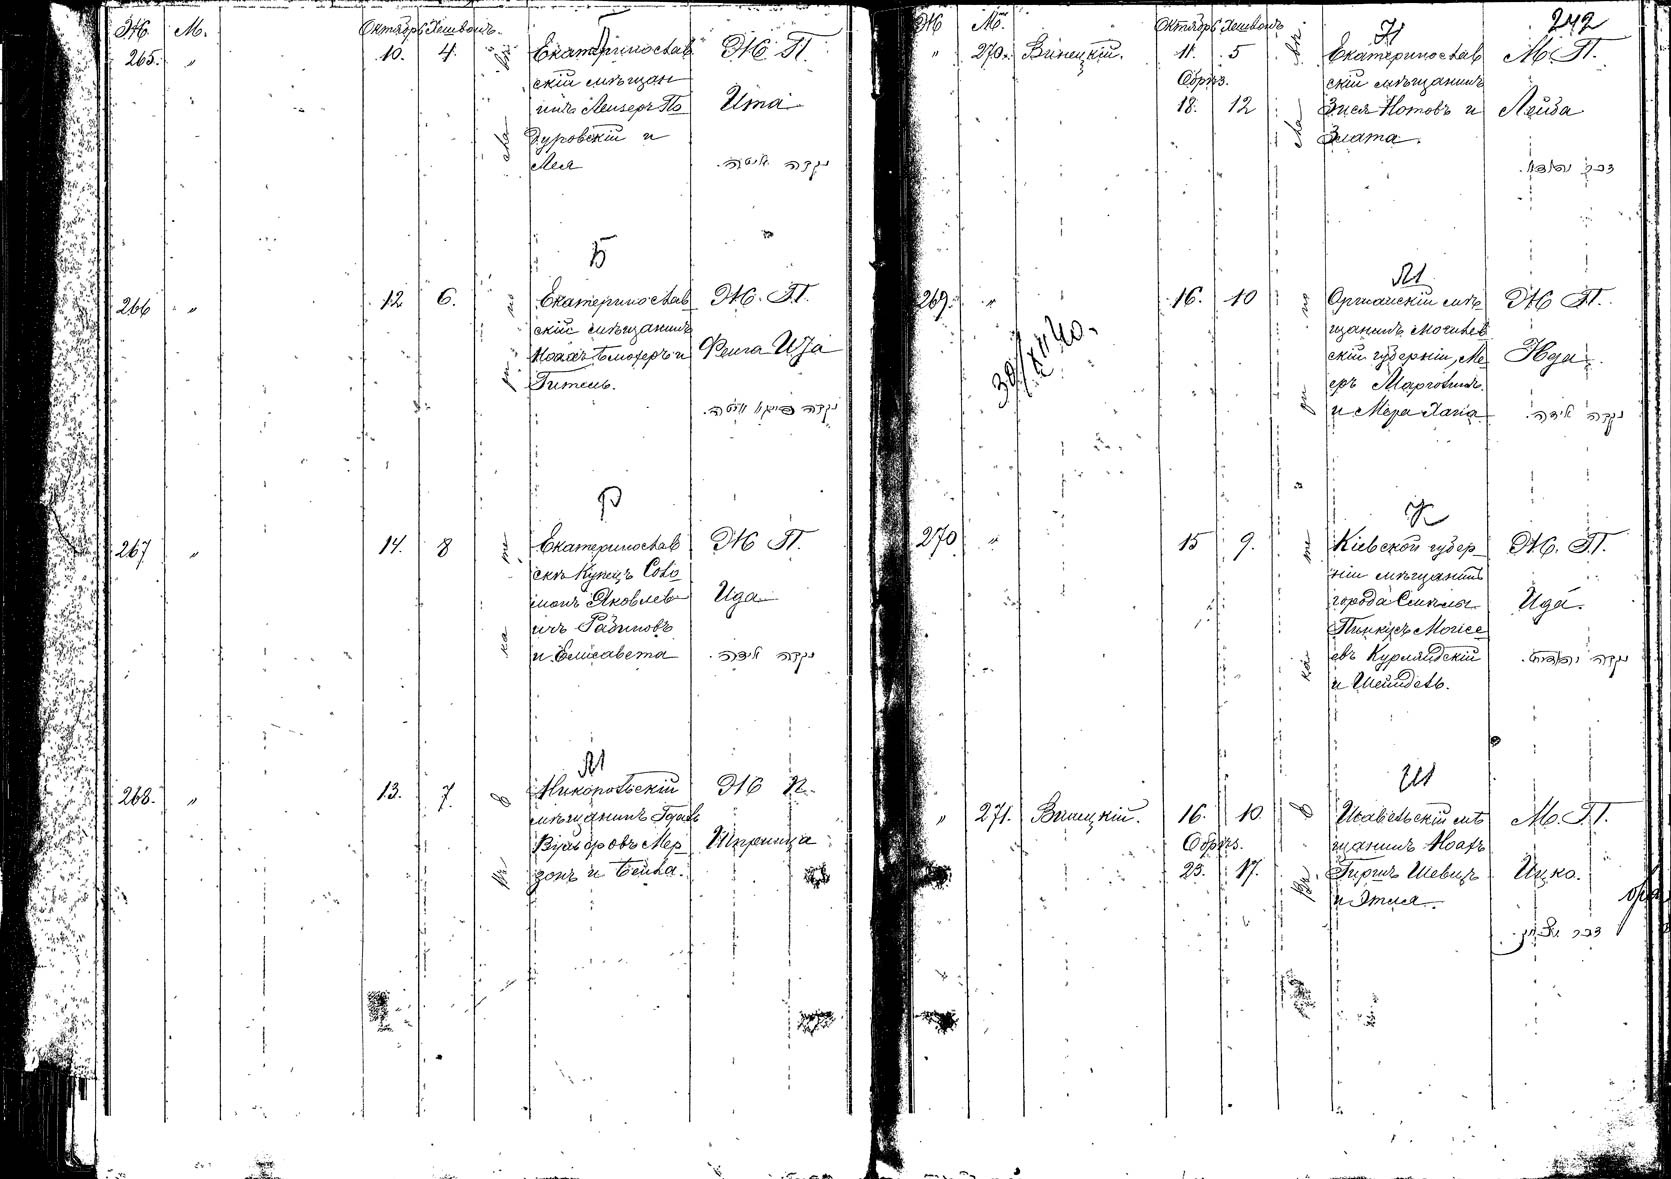 Ж М. Октябрь Хешвонъ.
265. " 10. 4. Екатеринослав
скій мѣщан
инъ Лейзеръ По
дуровскій и
Лея
Ж П.
Ита
נקבה איטה.
Б
266 " 12 6. Екатеринослав
скій мѣщанинъ
Ноахъ и
Гитель.
Ж. П.
Фейга Ида
Р
267 " 14. 8 Екатеринослав
скъ Купецъ Соло
монъ Яковлев
ичъ Рабиновъ
и Елисавета
Ж П.
Ида
נקבה אידה.
М
268. " 13. 7. Никопольскій
мѣщанинъ
Вульфовъ Мер
зонъ и Бейла.
Ж П.
Шпринца
242
Ж М. Октябрь Хешвонъ
" 270. Винецкій. 11. 5
Обрѣз.
18. 12
Н
Екатеринослав
скій мѣщанинъ
Зися Нотовъ и
Злата.
М. П.
Лейба
זכר
269. " 16. 10
30/XII 40.
М
Оршанскій мѣ
щанинъ Могилев
скій губерніи, Ме
еръ Марголинъ
и Мера Хана
Ж П.
Ида.
נקבה אידה.
270 " 15 9.
К
Кіевской губер
ніи мѣщанинъ
города Смѣлы
Пинкусъ Моисе
евъ Курляндскій
и Шейндель.
Ж. П.
Ида.
נקבה
" 271. Винецкій. 16. 10.
Обрѣз.
23. 17.
Ш
мѣ
щанинъ Ноахъ
Гиршъ Шевицъ
и Этля.
М. П.
Ицко.
זכר איצק.
въ
Екатеринославѣ